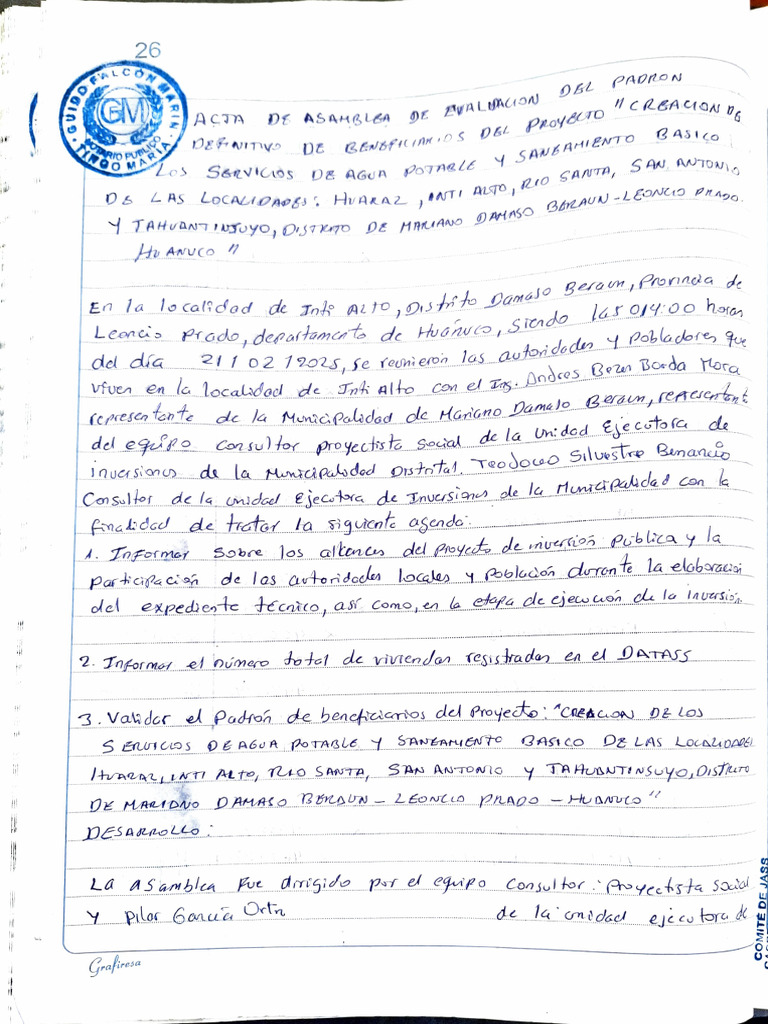 26
GUIDO FALCON MARIN
GFM
NOTARIO PUBLICO
TINGO MARIA
ACTA DE ASAMBLEA DE EVALUACION DEL PADRON
DEFINITIVO DE BENEFICIARIOS DEL PROYECTO "CREACION DE
LOS SERVICIOS DE AGUA POTABLE Y SANEAMIENTO BASICO
DE LAS LOCALIDADES: HUARAZ, INTI ALTO, RIO SANTA, SAN ANTONIO
Y TAHUANTINSUYO, DISTRITO DE MARIANO DAMASO BERAUN - LEONCIO PRADO.
HUANUCO"
En la localidad de Inti ALTO, Distrito Damaso Beraun, Provincia de
Leoncio Prado, departamento de Huánuco, siendo las 014:00 horas
del día 21 / 02 / 2025, se reunieron las autoridades y pobladores que
viven en la localidad de Inti Alto con el Ing. Andres Borda Mora
representante de la Municipalidad de Mariano Damaso Beraun, representante
del equipo consultor proyectista social de la Unidad Ejecutora de
inversiones de la Municipalidad Distrital. Teodoceo Silvestre Benancio
Consultor de la unidad Ejecutora de Inversiones de la Municipalidad con la
finalidad de tratar la siguiente agenda:
1. Informar sobre los alcances del proyecto de inversión pública y la
participación de las autoridades locales y población durante la elaboración
del expediente técnico, así como, en la etapa de ejecución de la inversión.
2. Informar el número total de viviendas registradas en el DATASS
3. Validar el Padrón de beneficiarios del Proyecto: "CREACION DE LOS
SERVICIOS DE AGUA POTABLE Y SANEAMIENTO BASICO DE LAS LOCALIDADES
HUARAZ, INTI ALTO, RIO SANTA, SAN ANTONIO Y TAHUANTINSUYO, DISTRITO
DE MARIANO DAMASO BERAUN - LEONCIO PRADO - HUANUCO"
DESARROLLO:
La asamblea fue dirigido por el equipo consultor: Proyectista social
y Pilar García Ortiz de la unidad ejecutora de
Grafiresa
COMITÉ DE JASS